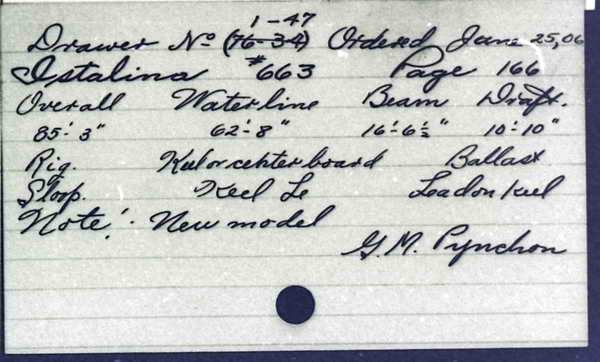 1-47
Drawer No (76-34) Ordered June 25, 06
Istalina #663 Page 166
Overall Waterline Beam Draft.
85'-3" 62'-8" 16'-6½" 10'-10"
Rig. Keel or centerboard Ballast
Sloop. Keel Lead on keel
Note! New model
G. M. Pynchon